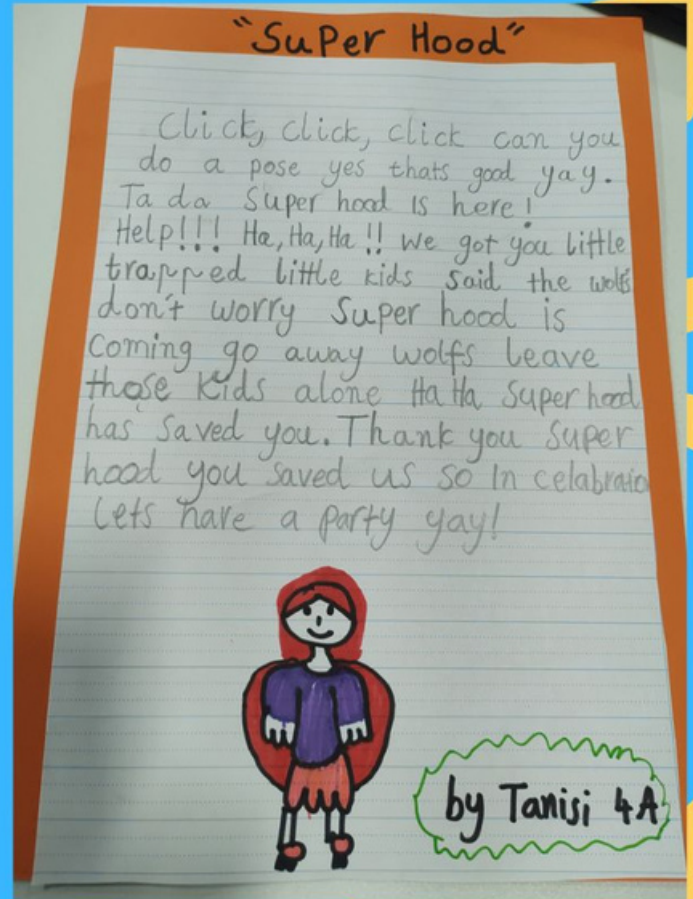 "Super Hood"
Click, Click, click can you
do a pose yes thats good yay.
Ta da Super hood is here!
Help!!! Ha, Ha, Ha!! we got you little
trapped little kids said the wolfs
don't worry Super hood is
coming go away wolfs leave
those kids alone Ha Ha Super hood
has saved you. Thank you Super
hood you saved us so in celabraio
lets have a party yay!
by Tanisi 4A